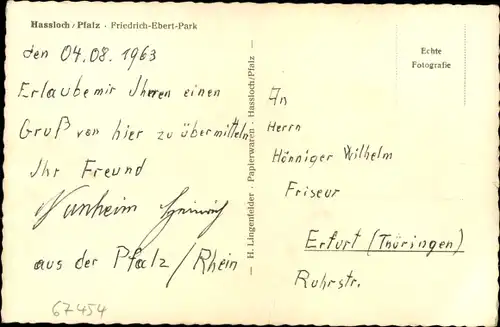 Hassloch / Pfalz · Friedrich-Ebert-Park
den 04.08.1963
Erlaube mir Iheren einen
Gruß von hier zu übermitteln
Ihr Freund
Heinrich
aus der Pfalz / Rhein
67454
H. Lingenfelder · Papierwaren · Hassloch/Pfalz
Echte
Fotografie
An
Herrn
Hönniger Wilhelm
Friseur
Erfurt (Thüringen)
Ruhrstr.